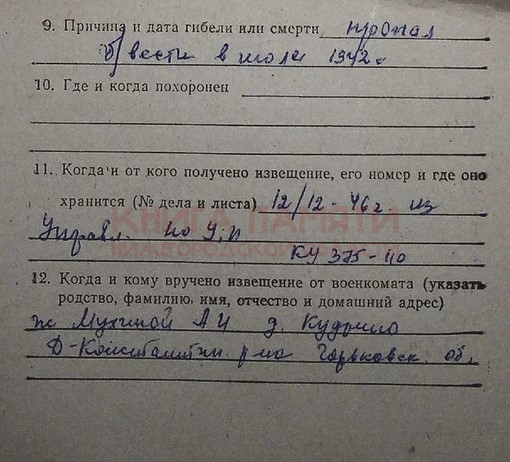 9. Причина и дата гибели или смерти пропал
б/ вести в июле 1942 г
10. Где и когда похоронен
11. Когда и от кого получено извещение, его номер и где оно
хранится (№ дела и листа) 12/12-46г. из
КНИГА ПАМЯТИ
Управл. по У.П
НИЖЕГОРОДСКОЙ ОБЛАСТИ
КУ 375-40
12. Когда и кому вручено извещение от военкомата (указать
родство, фамилию, имя, отчество и домашний адрес)
ж Мухиной А И д.
Д-Константин. р-на Горьковск. об.